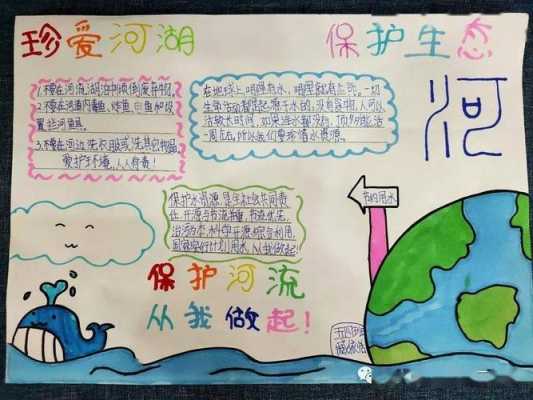 珍爱河湖
保护生态
河
1.不要在河流、湖泊中倾倒废弃物。
2.不要在河道内毒鱼、炸鱼、
置拦河鱼具。
3.不要在河边洗衣服或洗其它物品。
爱护环境,人人有责!
在地球上,哪里有水,哪里就有生命。一切
生命活动都是起源于水的。没有食物,人可以
活较长时间,如果连水都没有,顶多能活
一周左右。所以我们要珍惜水资源。
保护水资源是全社会共同责
任,开源与节流并重,节流优先、
治污为本,科学开源,综合利用。
国家实行计划用水,从我做起!
节约用水
保护河流
从我做起!